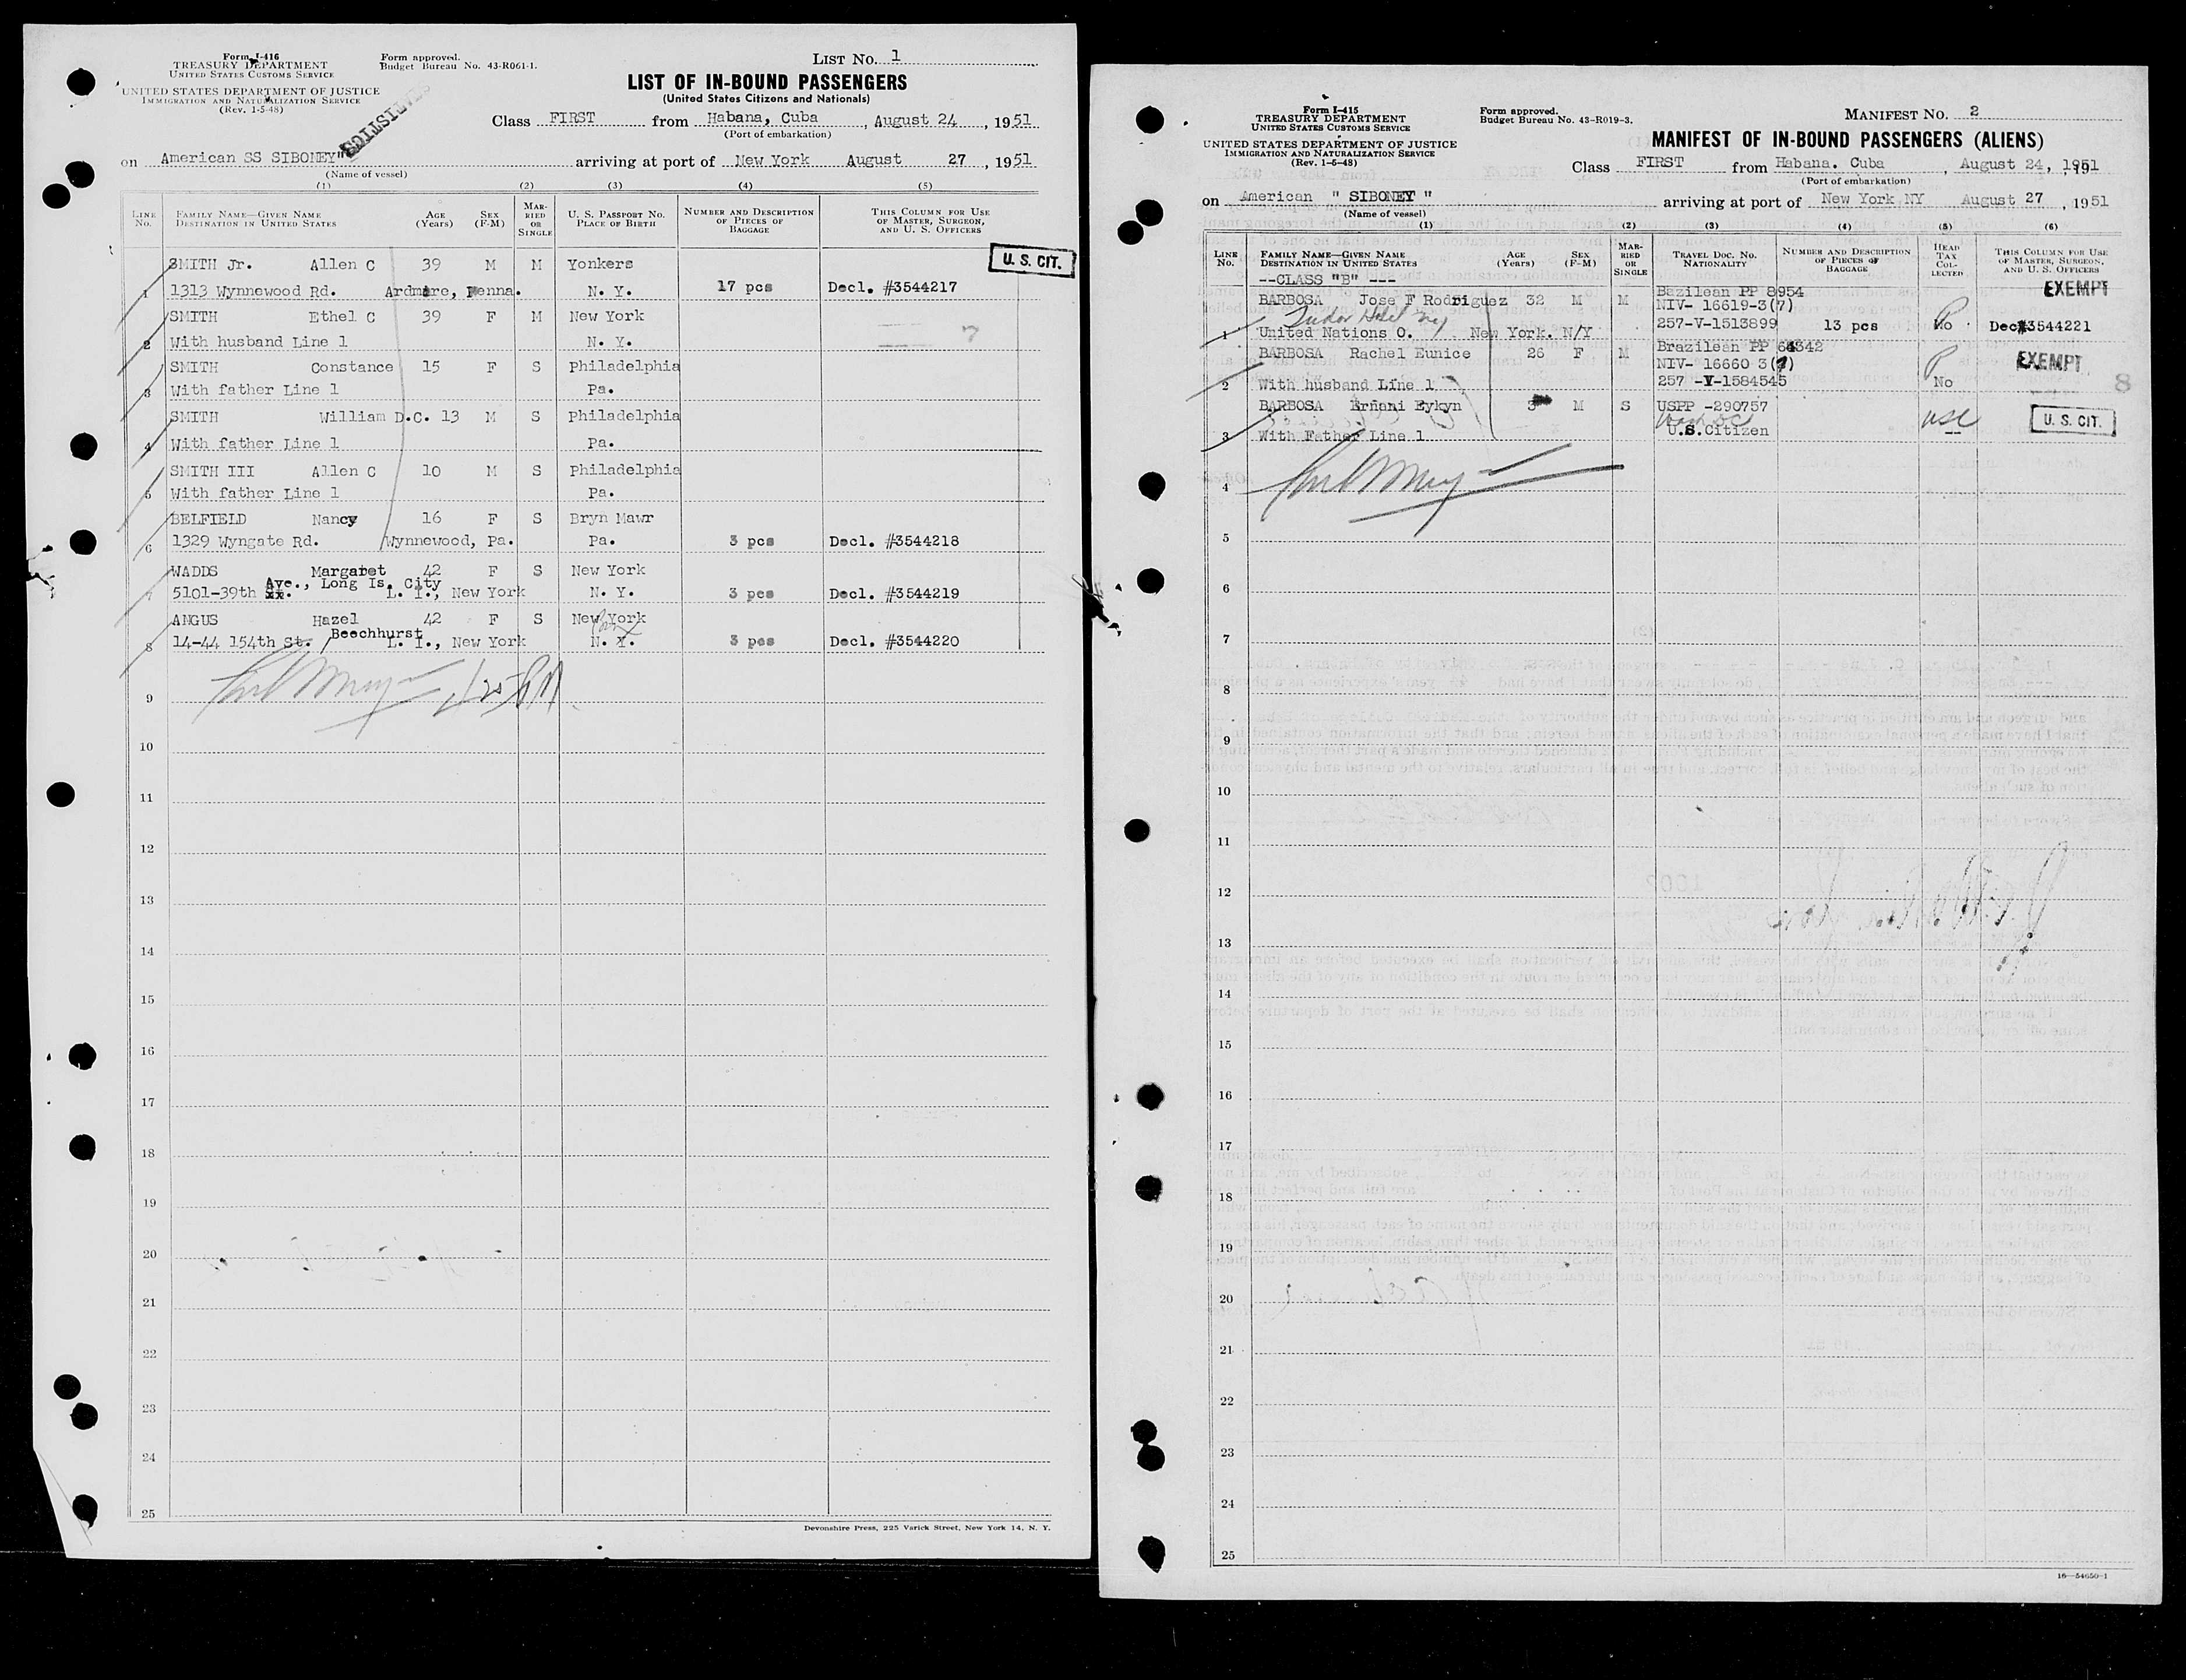 Form I-416
TREASURY DEPARTMENT
UNITED STATES CUSTOMS SERVICE
UNITED STATES DEPARTMENT OF JUSTICE
IMMIGRATION AND NATURALIZATION SERVICE
(Rev. 1-5-48)
Form approved.
Budget Bureau No. 43-R061-1.
LIST No. 1
LIST OF IN-BOUND PASSENGERS
(United States Citizens and Nationals)
Class FIRST from Habana, Cuba, August 24, 1951
(Port of embarkation)
on American SS SIBONEY" arriving at port of New York August 27, 1951
(Name of vessel)
(1) (2) (3) (4) (5)
LINE No. FAMILY NAME—GIVEN NAME DESTINATION IN UNITED STATES AGE (Years) SEX (F-M) MARRIED OR SINGLE U. S. PASSPORT No. PLACE OF BIRTH NUMBER AND DESCRIPTION OF PIECES OF BAGGAGE THIS COLUMN FOR USE OF MASTER, SURGEON, AND U. S. OFFICERS
U. S. CIT.
SMITH Jr. Allen C 39 M M Yonkers
1 1313 Wynnewood Rd. Ardmore, Penna. N. Y. 17 pcs Decl. #3544217
SMITH Ethel C 39 F M New York 7
2 With husband Line 1 N. Y.
SMITH Constance 15 F S Philadelphia
3 With father Line 1 Pa.
SMITH William D.C. 13 M S Philadelphia
4 With father Line 1 Pa.
SMITH III Allen C 10 M S Philadelphia
5 With father Line 1 Pa.
BELFIELD Nancy 16 F S Bryn Mawr
6 1329 Wyngate Rd. Wynnewood, Pa. Pa. 3 pcs Decl. #3544218
WADDS Margaret 42 F S New York
Ave., Long Is. City
7 5101-39th xx. L. I., New York N. Y. 3 pcs Decl. #3544219
ANGUS Hazel 42 F S New York
Beechhurst
8 14-44 154th St. L. I., New York N. Y. 3 pcs Decl. #3544220
9
10
11
12
13
14
15
16
17
18
19
20
21
22
23
24
25
Devonshire Press, 225 Varick Street, New York 14, N. Y.
Form I-415
TREASURY DEPARTMENT
UNITED STATES CUSTOMS SERVICE
UNITED STATES DEPARTMENT OF JUSTICE
IMMIGRATION AND NATURALIZATION SERVICE
(Rev. 1-5-48)
Form approved.
Budget Bureau No. 43-R019-3.
MANIFEST No. 2
MANIFEST OF IN-BOUND PASSENGERS (ALIENS)
Class FIRST from Habana. Cuba, August 24, 1951
(Port of embarkation)
on American " SIBONEY " arriving at port of New York NY August 27, 1951
(Name of vessel)
(1) (2) (3) (4) (5) (6)
LINE No. FAMILY NAME—GIVEN NAME DESTINATION IN UNITED STATES AGE (Years) SEX (F-M) MARRIED OR SINGLE TRAVEL DOC. No. NATIONALITY NUMBER AND DESCRIPTION OF PIECES OF BAGGAGE HEAD TAX COLLECTED THIS COLUMN FOR USE OF MASTER, SURGEON, AND U. S. OFFICERS
--CLASS "B" ---
EXEMPT
Bazilean PP 8954
BARBOSA Jose F Rodriguez 32 M M NIV- 16619-3(7)
Tudor Hotel NY
257-V-1513899 13 pcs No Dec#3544221
1 United Nations O. New York. N/Y
Brazilean PP 64342
BARBOSA Rachel Eunice 26 F M NIV- 16660 3(7) EXEMPT
2 With husband Line 1 257 -V-1584545 No 8
BARBOSA Ernani Eykyn 3 M S USPP -290757
Wash DC usc U. S. CIT.
3 With Father Line 1 U.S.Citizen
4
5
6
7
8
9
10
11
12
13
14
15
16
17
18
19
20
21
22
23
24
25
16—54650-1